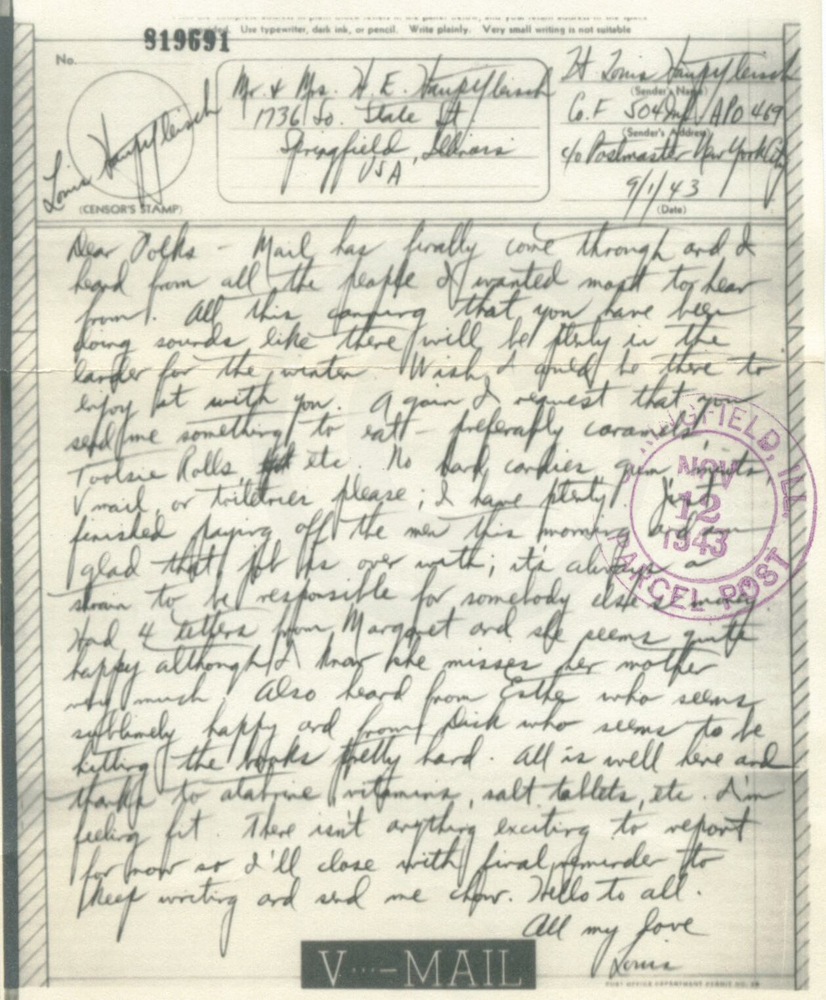 Use typewriter, dark ink, or pencil. Write plainly. Very small writing is not suitable
No.
819691
(CENSOR'S STAMP)
Louis Haupfleisch
Mr & Mrs. H. E. Haupfleisch
1736 So. State St
Springfield, Illinois
USA
Lt Louis Haupfleisch
(Sender's Name)
Co. F 504 Inf. APO 469
(Sender's Address)
c/o Postmaster New York City
9/1/43
(Date)
Dear Folks - Mail has finally come through and I
heard from all the people I wanted most to hear
from. All this canning that you have been
doing sounds like there will be plenty in the
larder for the winter. Wish I could be there to
enjoy it with you. Again I request that you
send me something to eat - preferably caramels,
Tootsie Rolls etc. No hard candies, gum, mints,
V mail, or toiletries please; I have plenty. Just
finished paying off the men this morning and am
glad that job is over with; it's always a
strain to be responsible for somebody else's money.
Had 4 letters from Margaret and she seems quite
happy although I know she misses her mother
very much. Also heard from Esther who seems
sublimely happy and from Dick who seems to be
hitting the books pretty hard. All is well here and
thanks to atabrine, vitamins, salt tablets, etc. I'm
feeling fit. There isn't anything exciting to report
for now so I'll close with final reminder to
keep writing and send me chow. Hello to all.
All my love
Louis
FIELD, ILL.
NOV
12
1943
PARCEL POST
V···—MAIL